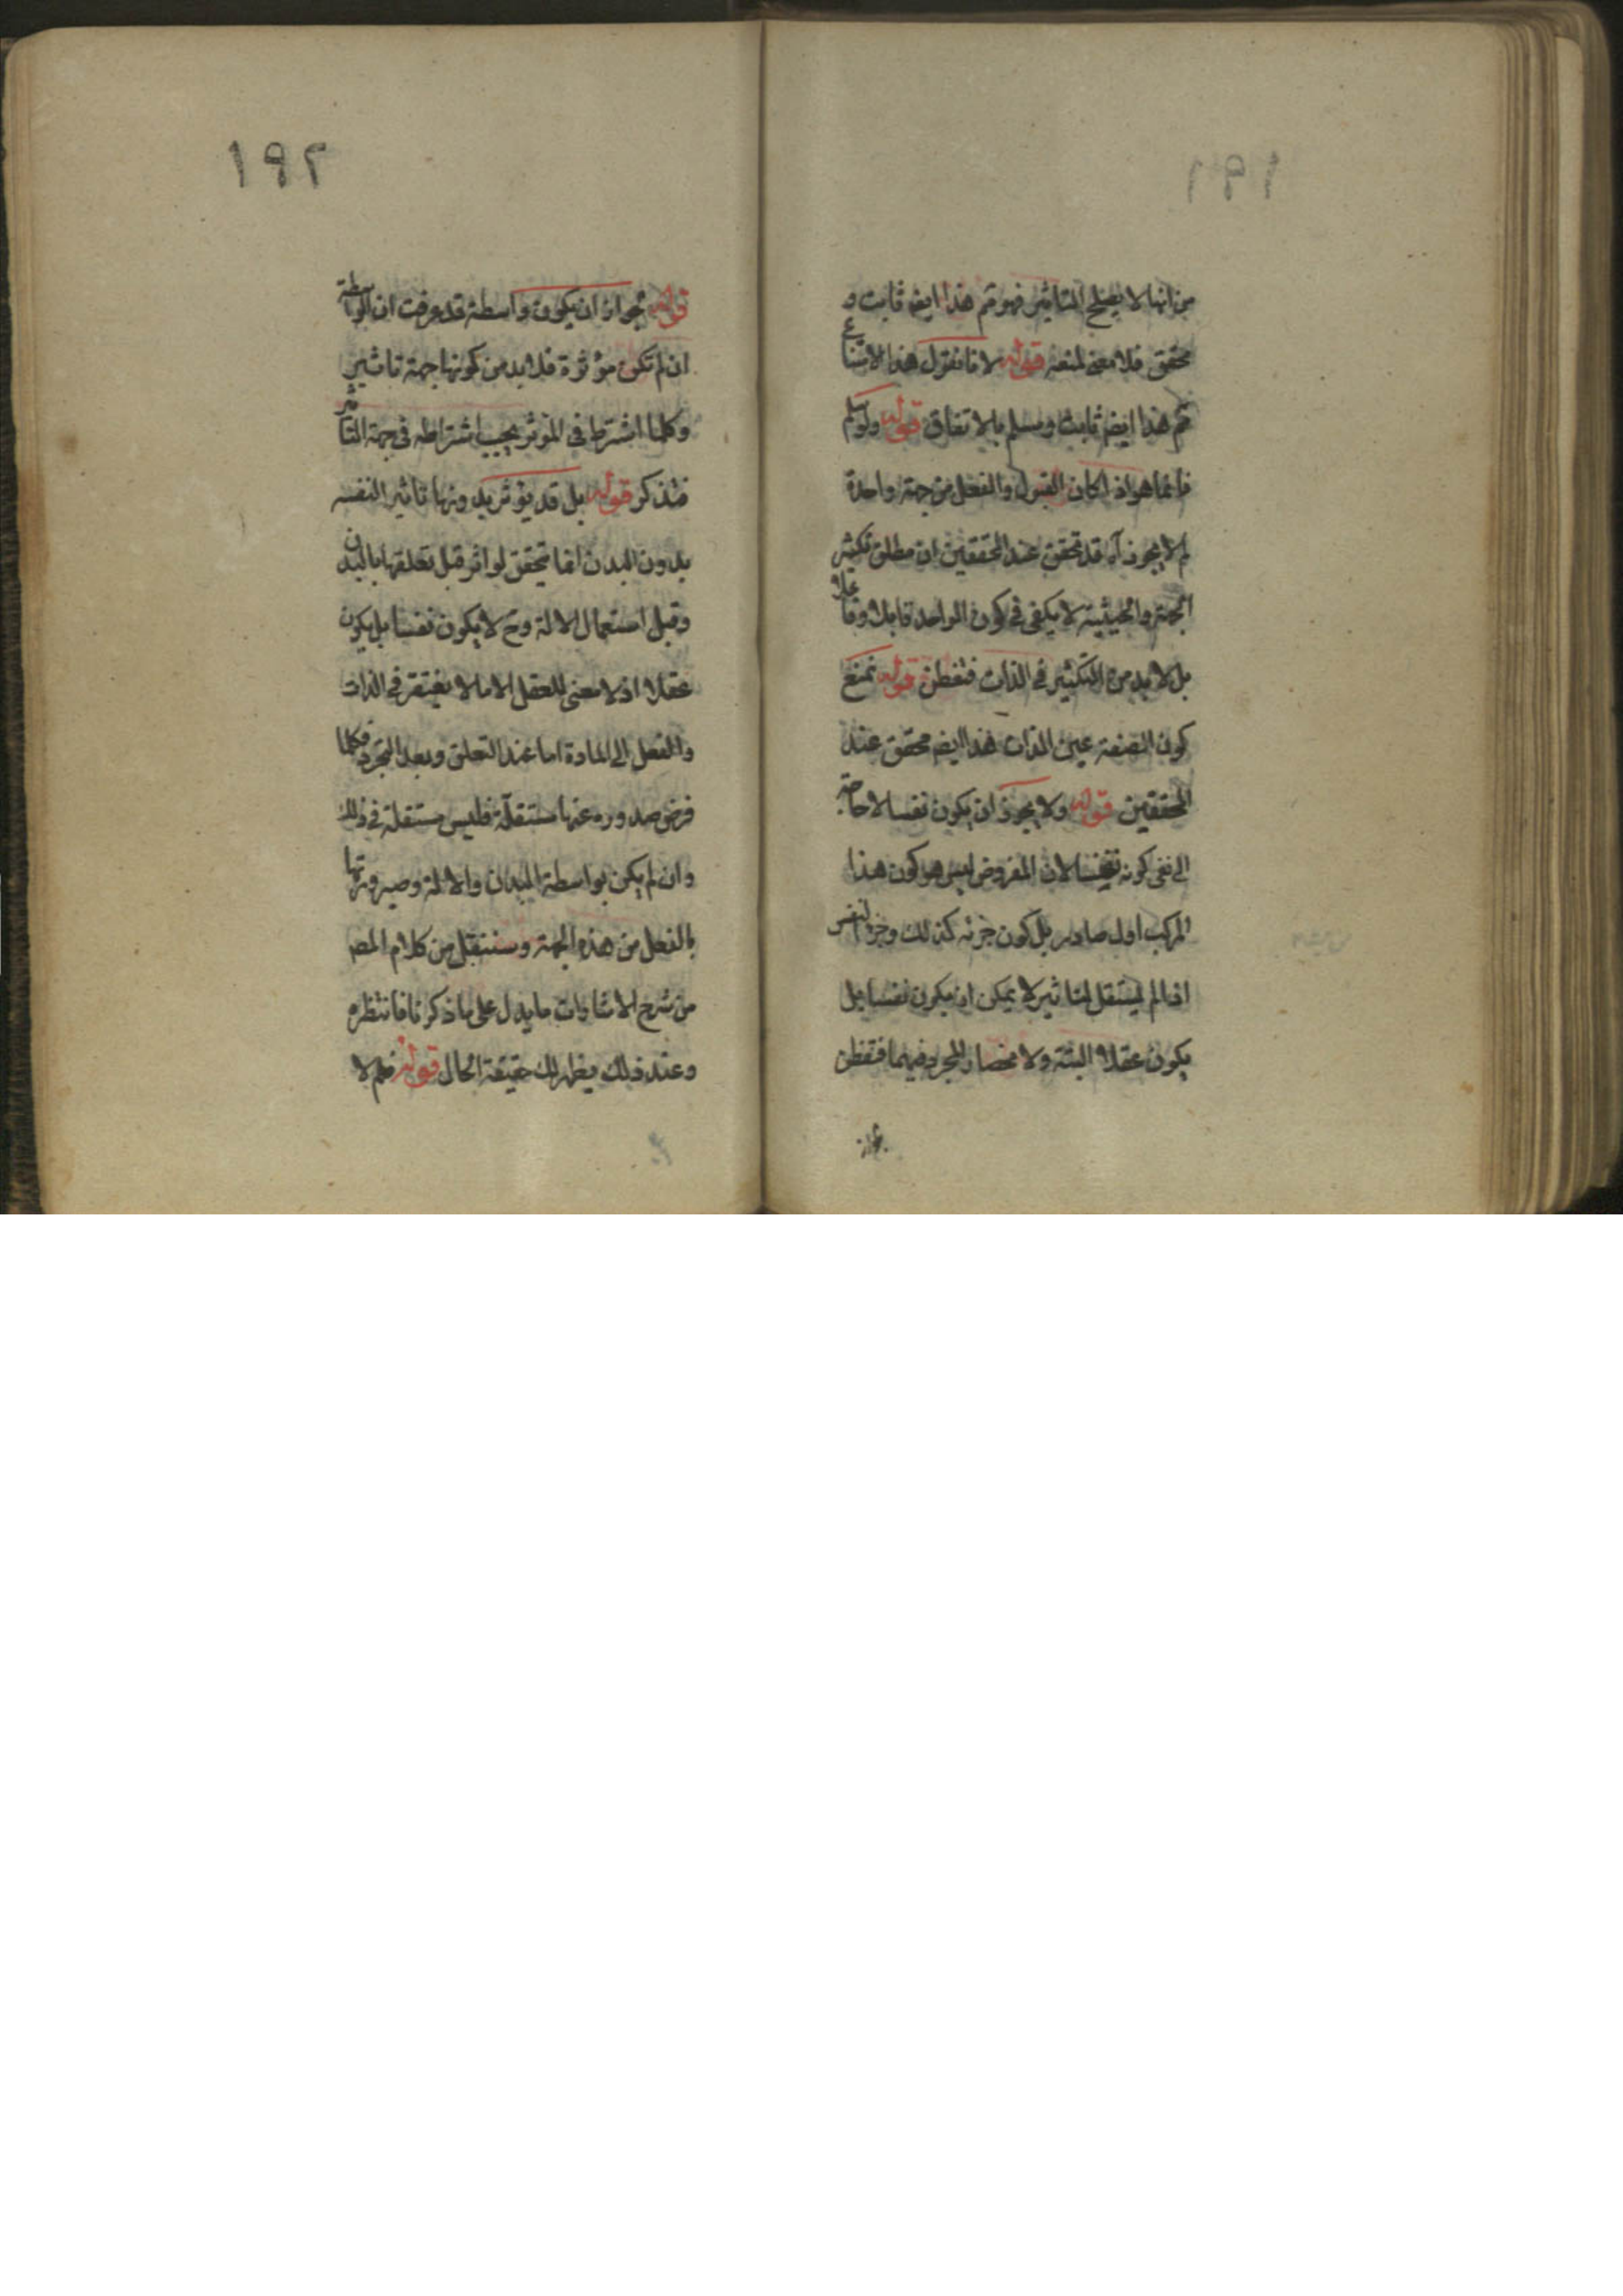 ١٩١
من انها لا يصلح للتاثير فهو تم هذا ايضم ثابت و
محقق فلا معنى لمنعه قوله لانا نقول هذا الامتناع
تم هذا ايضم ثابت ومسلم بالاتفاق قوله ولو سلم
فانما هو اذا كان القبول والفعل من جهة واحدة
لم لا يجوز آه قد تحقق عند المحققين ان مطلق تكثير
الجهة والحيثية لا يكفى فى كون الواحد قابلا وفاعلا
بل لا بد من التكثير فى الذات فتفطن قوله نمنع
كون الصفة عين الذات هذا ايضم محقق عند
المحققين قوله ولا يجوز ان يكون نفسا لا حاجة
الى نفى كونه نفسا لان المفروض ليس هو كون هذا
المركب اول صادر بل كون جزئه كذلك وجزء النفس
اذا لم يستقل للتاثير لا يمكن ان يكون نفسا بل
يكون عقلا البتة ولا محضا والمجرد فيهما فتفطن
١٩٢
قوله لجواز ان يكون واسطة قد عرفت ان الواسطة
ان لم تكن مؤثرة فلا بد من كونها جهة تاثير
وكلما اشترط فى المؤثر يجب اشتراطه فى جهة التاثير
فتذكر قوله بل قد يؤثر بدونها تاثير النفس
بدون البدن انما تحقق لو اثر قبل تعلقها بالبدن
وقبل استعمال الالة وح لا يكون نفسا بل يكون
عقلا اذ لا معنى للعقل الا ما لا يفتقر فى الذات
والفعل الى المادة اما عند التعلق وبعد التجرد فكلما
فرض صدوره عنها مستقلة فليس مستقلة فى ذلك
وان لم يكن بواسطة البدن والالة وصيرورتها
بالفعل من هذه الجهة وسننقل من كلام المص
من شرح الاشارات ما يدل على ما ذكرنا فانتظره
وعند ذلك يظهر لك حقيقة الحال قوله فلم لا